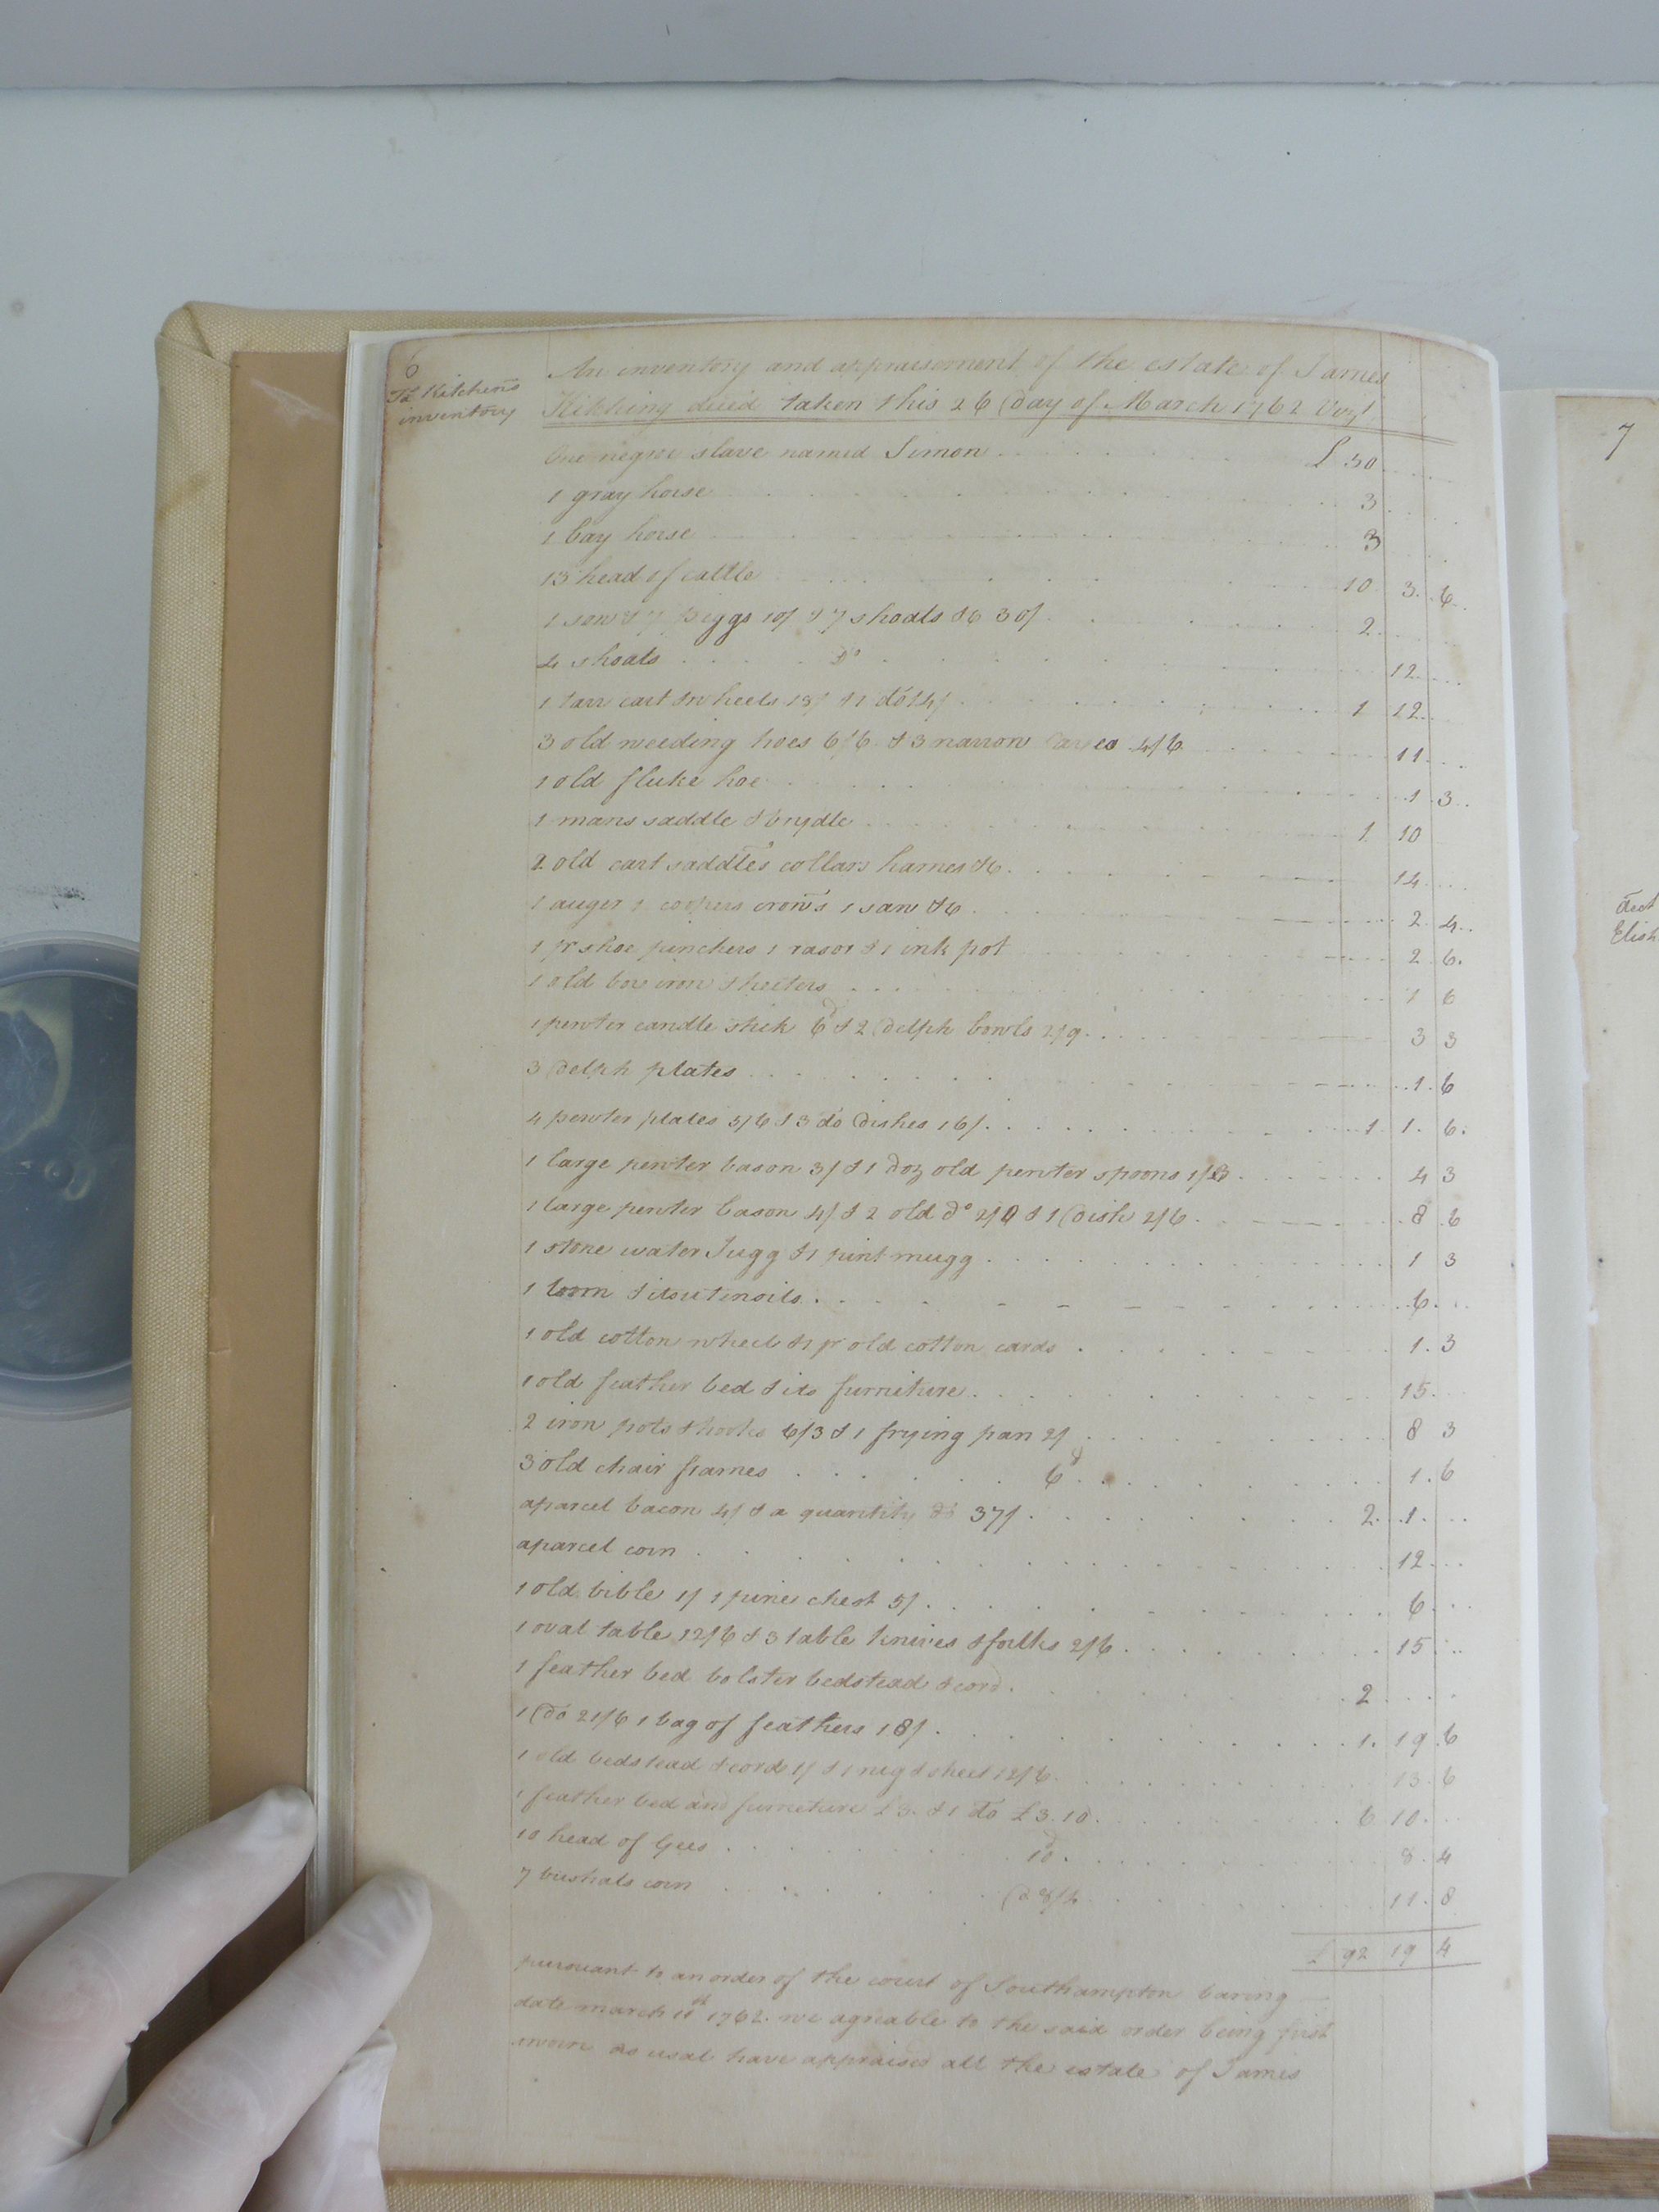 6
Js Kitchens
inventory
An inventory and appraisement of the estate of James
Kitching deced taken this 26 day of March 1762 Vizt
One negroe slave named Simon £ 50
1 gray horse 3
1 bay horse 3
13 head of cattle 10 3 6
1 sow & 7 piggs 10/ & 7 shoats &c 30/ 2
4 shoats do 12
1 tarr cart & wheels 18/ & 1 do 14/ 1 12
3 old weeding hoes 6/6 & 3 narrow axes 4/6 11
1 old fluke hoe 1 3
1 mans saddle & brydle 1 10
2 old cart saddles collars hames &c 14
1 auger 1 coopers 1 saw &c 2 4
1 pr shoe pinchers 1 rasor & 1 ink pot 2 6
1 old box iron & heeters 1 6
1 pewter candle stick 6d & 2 delph bowls 2/9 3 3
3 delph plates 1 6
4 pewter plates 5/6 & 3 do dishes 16/ 1 1 6
1 large pewter bason 3/ & 1 doz old pewter spoons 1/3 4 3
1 large pewter bason 4/ & 2 old do 2/0 & 1 dish 2/6 8 6
1 stone water Jugg & 1 pint mugg 1 3
1 loom & its utinsils 6
1 old cotton wheel & 1 pr old cotton cards 1 3
1 old feather bed & its furniture 15
2 iron pots & hooks 6/3 & 1 frying pan 2/ 8 3
3 old chair frames 6d 1 6
aparcel bacon 4/ & a quantity do 37/ 2 1
aparcel corn 12
1 old bible 1/ 1 pine chest 5/ 6
1 oval table 12/6 & 3 table knives & folks 2/6 15
1 feather bed bolster bedstead & cord 2
1 do 21/6 1 bag of feathers 18/ 1 19 6
1 old bedstead & cord 1/ & 1 rug & sheet 12/6 13 6
1 feather bed and furniture £3 & 1 do £3.10 6 10
10 head of Gees 10d 8 4
7 bushals corn 11 8
£ 92 19 4
pursuant to an order of the court of Southampton baring
date march 11th 1762. we agreable to the said order being first
sworn as usal have appraised all the estate of James
7
Acct
Elish